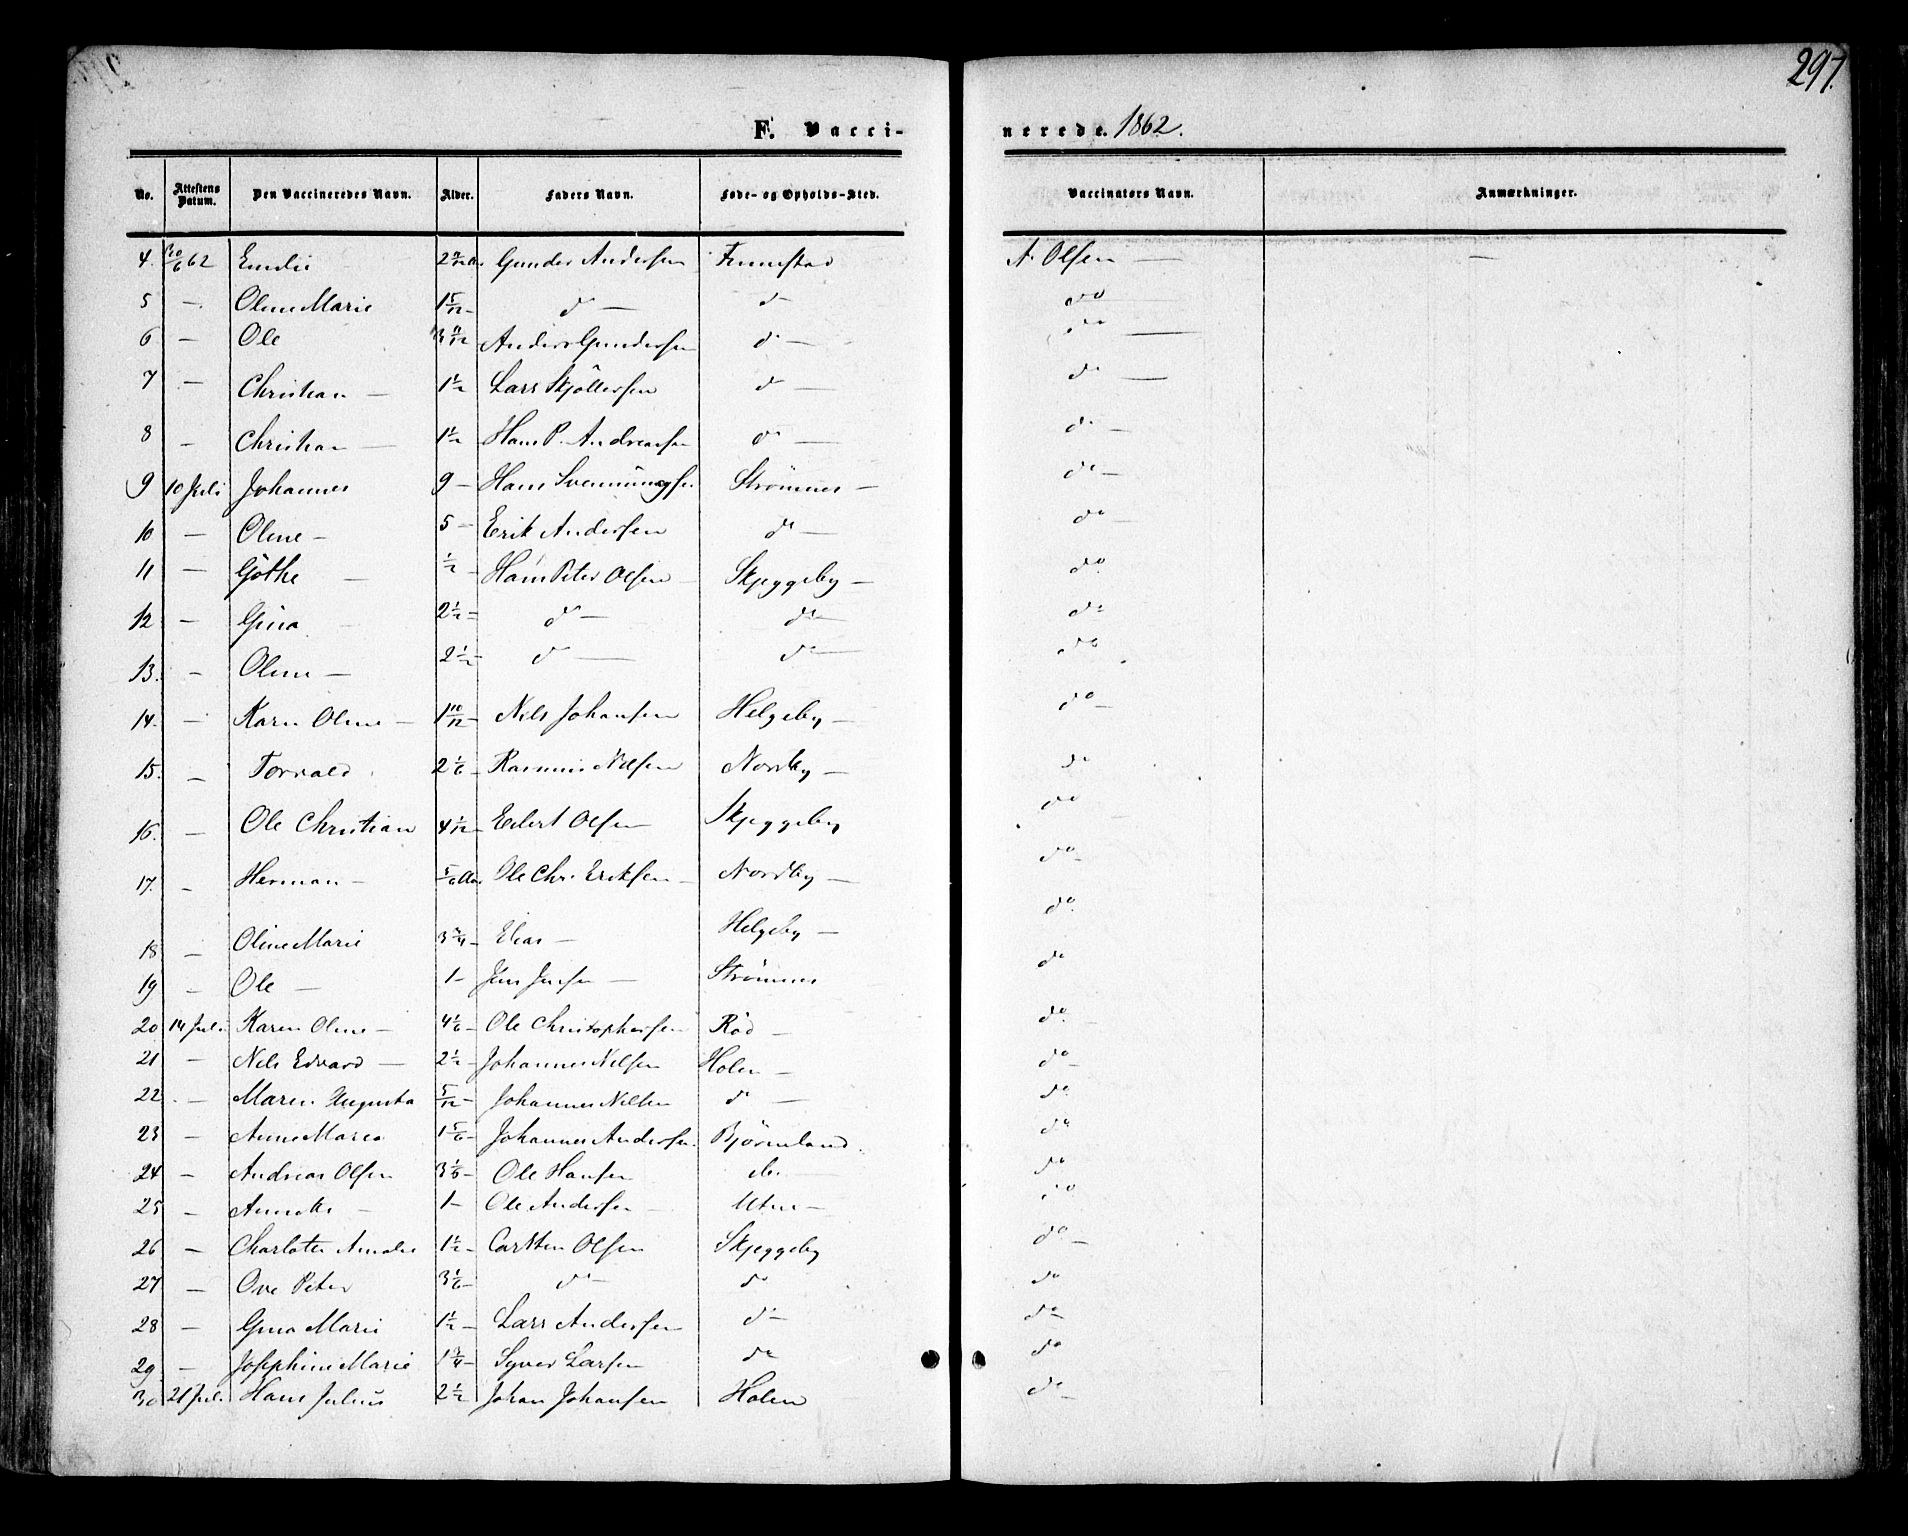 297.
F. Vacci- nerede. 1862.
No. | Attestens Datum. | Den Vaccineredes Navn. | Alder. | Faders Navn. | Føde- og Opholds-Sted. | Vaccinators Navn. | Anmærkninger.
4. 62 Emilie Gunder Andersen A. Olsen —
5 — Oline Marie 1 5/12 — do — do do
6 — Ole Anders Gundersen do — do —
7 — Christian — 1 1/2 Lars Skjöllersen do — do —
8 — Christian — 1 1/2 Hans P. Andreasen do — do —
9 10 Juli Johannes 9 — Hans Svenningsen Strömnes — do —
10 — Oline — 5 — Erik Andersen do — do —
11 — Göthe — 1/2 — Hans Peter Olsen — Skjeggeby — do
12 — Gina — 2 1/2 — do — do — do
13. — Oline — 2 1/2 — do — do — do
14. — Karen Oline — 1 10/12 — Nils Johansen Helgeby — do —
15. — Torvald 2 1/6 Rasmus Nilsen Nordby — do
16. — Ole Christian 4 1/12 — Edvert Olsen Skjeggeby do
17. — Herman — 5/6 Aar Ole Chr. Eriksen — Nordby — do —
18 — Oline Marie 3 3/4 — Elias — Helgeby — do
19 — Ole — 1 — Jens Jensen — Strömnes do
20 14 Juli Karen Oline — 4 1/6 — Ole Christophersen Röd — do —
21 — Nils Edvard — 2 1/2 — Johannes Nilsen Holen — do —
22 — Maren Augusta 5/12 — Johannes Nilsen do — do
23 — Anne Maria 1 5/6 — Johannes Andersen Björneland. do
24 — Andreas Olsen 3 1/6 — Ole Hansen do. do
25 — Annette — 1 — Ole Andersen — Utne — do
26 — Charlotte Amalie 1 1/2 — Carsten Olsen Skjeggeby do —
27 — Ove Peter 3 1/6 — do — do do
28 — Gina Marie 1 1/2 — Lars Andersen do — do
29 — Josephine Marie 1 3/4 — Syver Larsen do do
30 21 Juli Hans Julius 2 1/2 Johan Johansen Holen do —